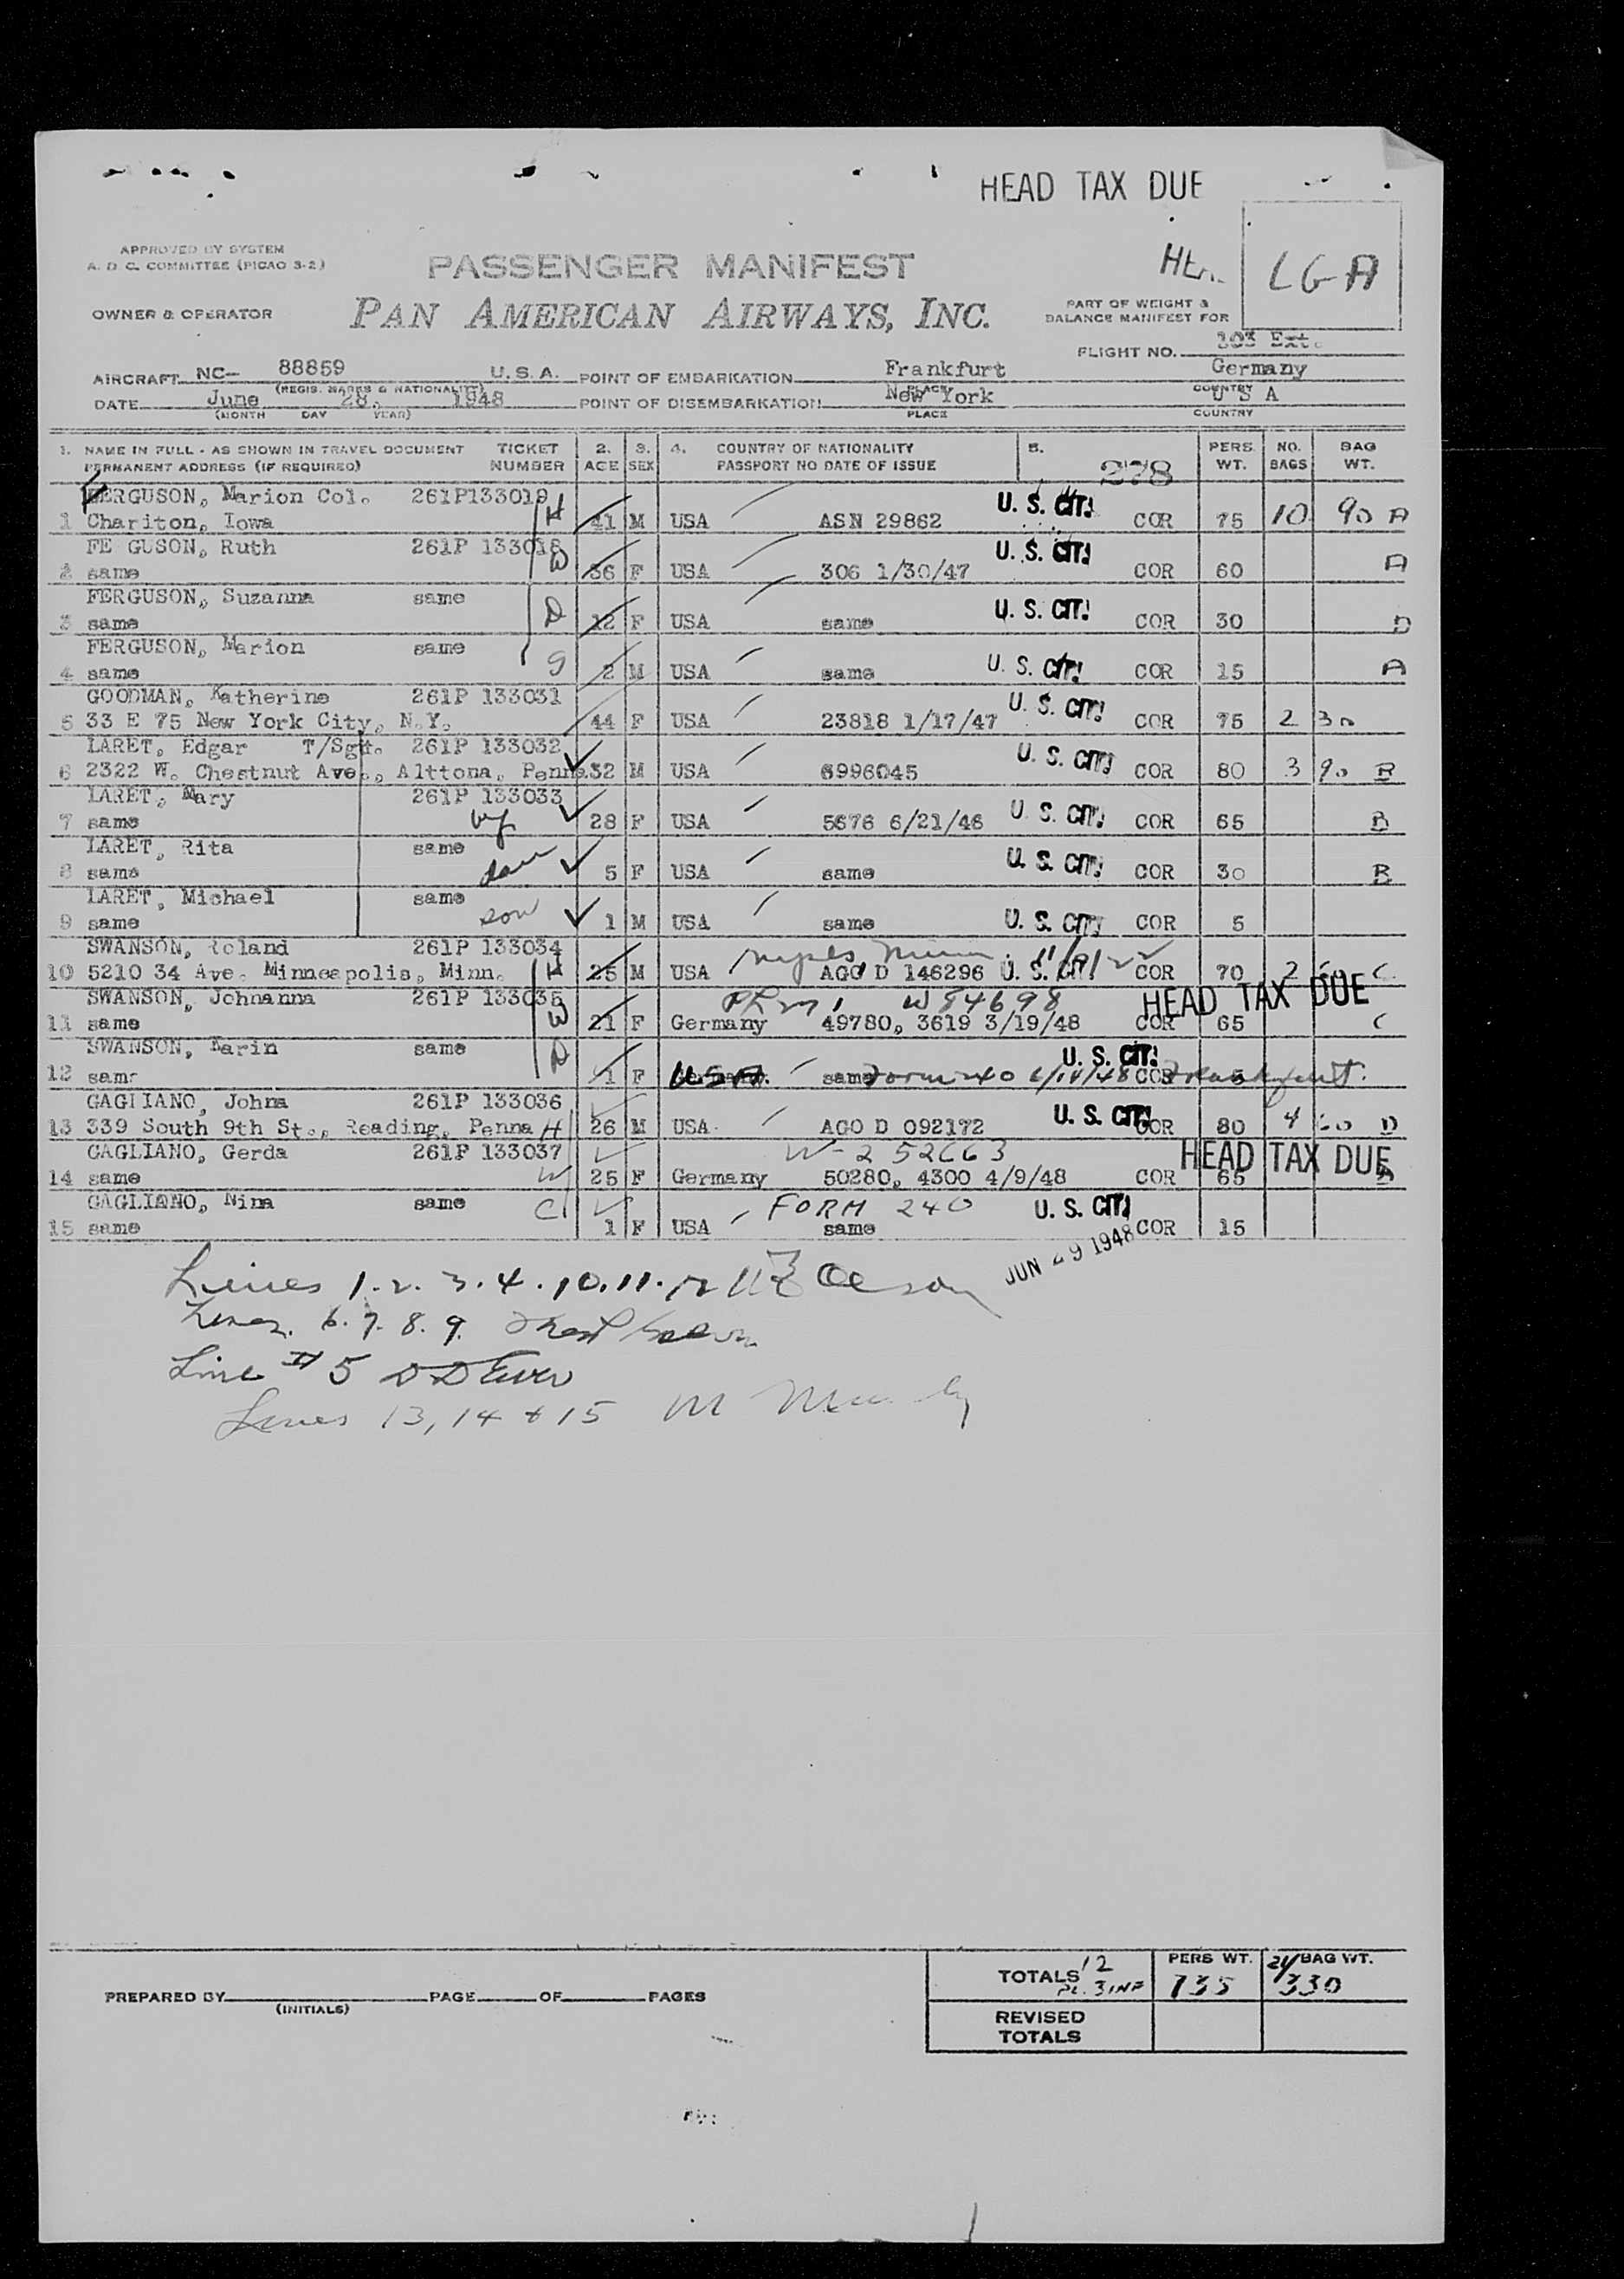 HEAD TAX DUE
APPROVED BY SYSTEM
A. D. C. COMMITTEE (PICAO 3-2)
PASSENGER MANIFEST
LGA
OWNER & OPERATOR
PAN AMERICAN AIRWAYS, INC.
PART OF WEIGHT &
BALANCE MANIFEST FOR
FLIGHT NO. 103 Ext.
AIRCRAFT NC- 88859 U.S.A. POINT OF EMBARKATION Frankfurt Germany
(REGIS. MARKS & NATIONALITY) PLACE COUNTRY
DATE June 28, 1948 POINT OF DISEMBARKATION New York U S A
(MONTH DAY YEAR) PLACE COUNTRY
1. NAME IN FULL - AS SHOWN IN TRAVEL DOCUMENT TICKET 2. 3. 4. COUNTRY OF NATIONALITY 5. PERS. NO. BAG
PERMANENT ADDRESS (IF REQUIRED) NUMBER AGE SEX PASSPORT NO DATE OF ISSUE 278 WT. BAGS WT.
FERGUSON, Marion Col. 261P133019 H U. S. CIT.
1 Chariton, Iowa 41 M USA ASN 29862 COR 75 10 90 A
FE GUSON, Ruth 261P 133018 W U. S. CIT.
2 same 36 F USA 306 1/30/47 COR 60 A
FERGUSON, Suzanna same D U. S. CIT.
3 same 12 F USA same COR 30
FERGUSON, Marion same S U. S. CIT.
4 same 2 M USA same COR 15 A
GOODMAN, Katherine 261P 133031 U. S. CIT.
5 33 E 75 New York City, N.Y. 44 F USA 23818 1/17/47 COR 75 2 30
LARET, Edgar T/Sgt. 261P 133032 U. S. CIT.
6 2322 W. Chestnut Ave., Alttona, Penna 32 M USA 6996045 COR 80 3 90 B
LARET, Mary 261P 133033 U. S. CIT.
7 same wf 28 F USA 5676 6/21/46 COR 65 B
LARET, Rita same U. S. CIT.
8 same dau 5 F USA same COR 30 B
LARET, Michael same
9 same son 1 M USA same U. S. CIT. COR 5
SWANSON, Roland 261P 133034 H Minn. 11/9/22
10 5210 34 Ave. Minneapolis, Minn. 25 M USA AGO D 146296 U. S. CIT. COR 70 2 C
SWANSON, Johnanna 261P 133035 W W84698 HEAD TAX DUE
11 same 21 F Germany 49780, 3619 3/19/48 COR 65 C
SWANSON, Karin same D U. S. CIT.
12 same 1 F USA same COR
GAGLIANO, Johna 261P 133036 U. S. CIT.
13 339 South 9th St., Reading, Penna H 26 M USA AGO D 092172 COR 80 4 60 D
GAGLIANO, Gerda 261P 133037 W-252663 HEAD TAX DUE
14 same W 25 F Germany 50280, 4300 4/9/48 COR 65
GAGLIANO, Nina same C FORM 240 U. S. CIT.
15 same 1 F USA same COR 15
JUN 29 1948
Lines 1.2.3.4.10.11.12
Lines 6.7.8.9.
Line #5
Lines 13, 14 + 15 M
TOTALS 12 PL. 3 INF PERS WT. 735 BAG WT. 21/330
PREPARED BY (INITIALS) PAGE OF PAGES
REVISED
TOTALS